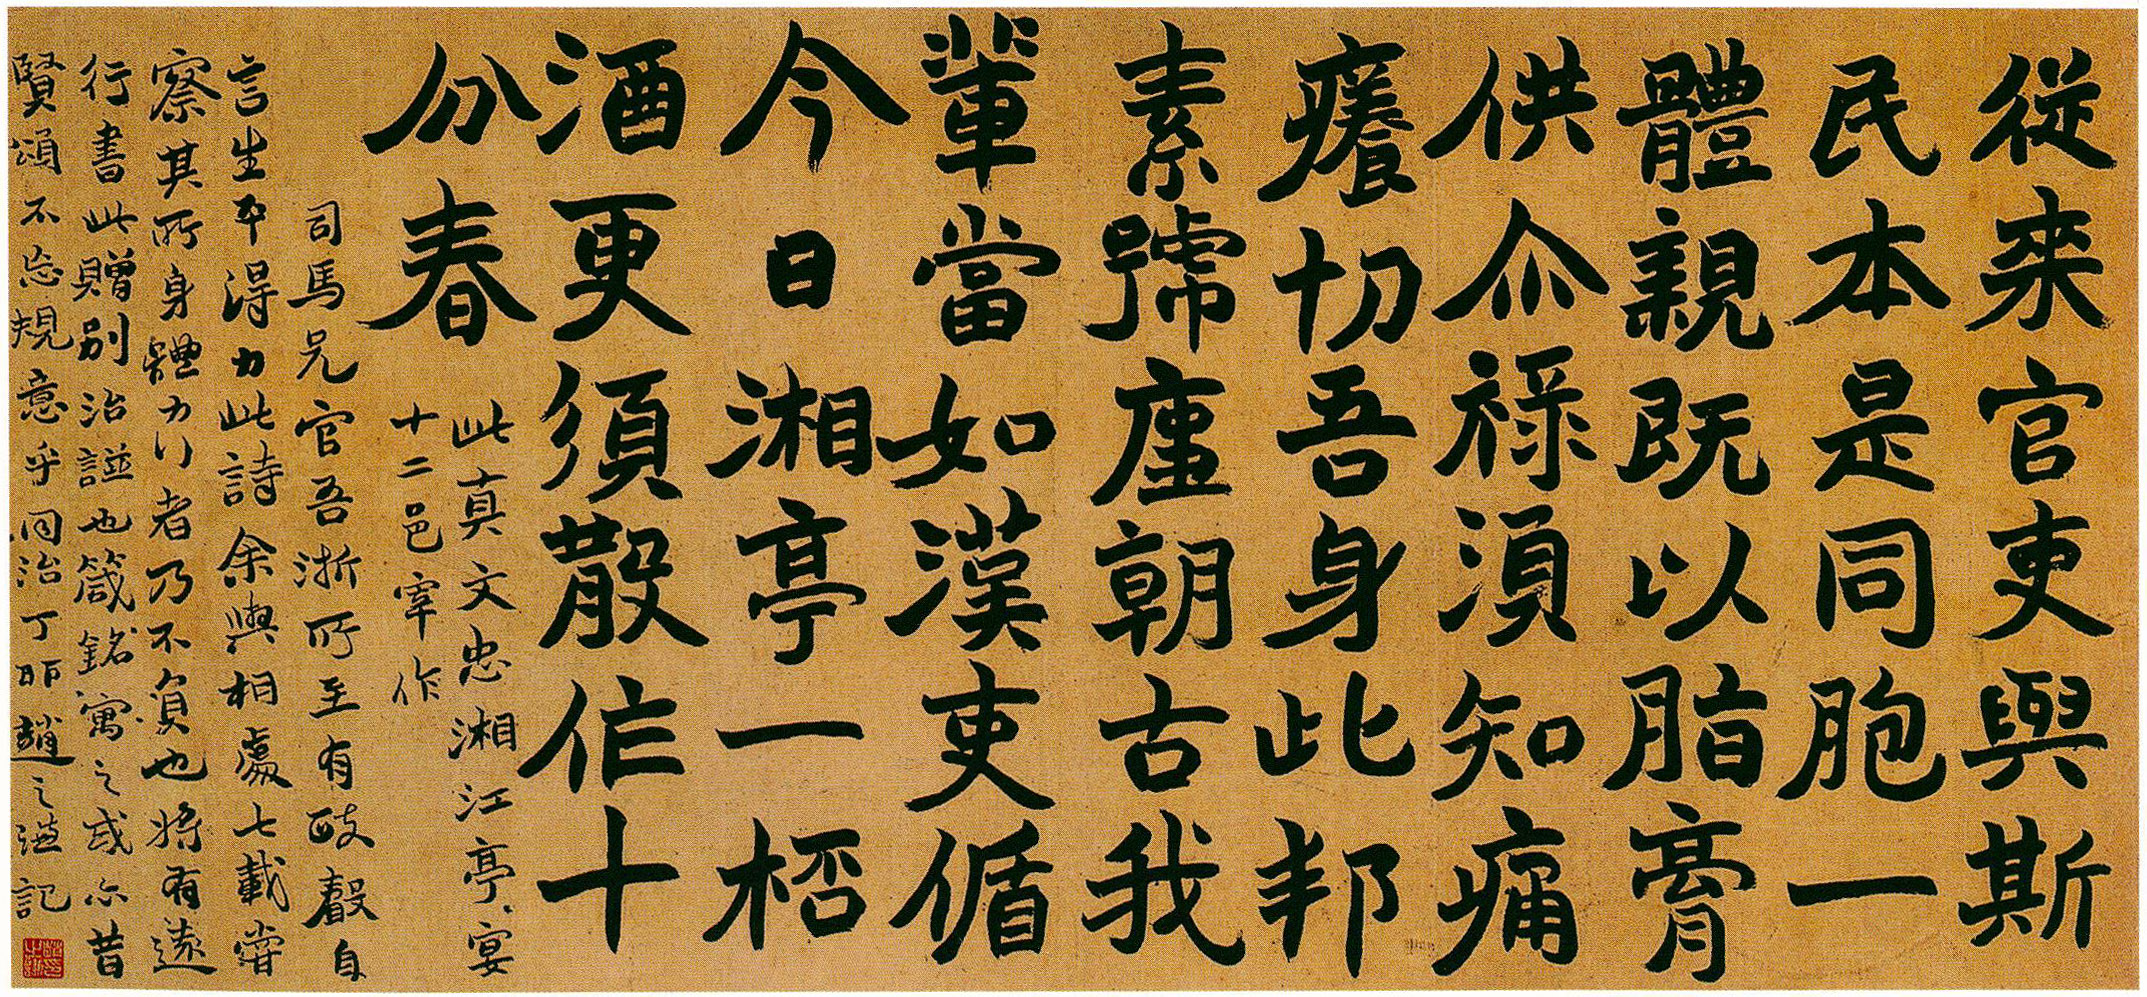 從來官吏與斯
民本是同胞一
體親既以脂膏
供尒祿須知痛
癢切吾身此邦
素號唐朝古我
輩當如漢吏循
今日湘亭一桮
酒更須散作十
分春
此真文忠湘江亭宴
十二邑宰作
司馬兄官吾浙所至有政聲自
言生平得力此詩余與相處七載嘗
察其所身體力行者乃不負也將有遠
行書此贈別治誼也箴銘寓之或亦昔
賢頌不忘規意乎同治丁卯趙之謙記